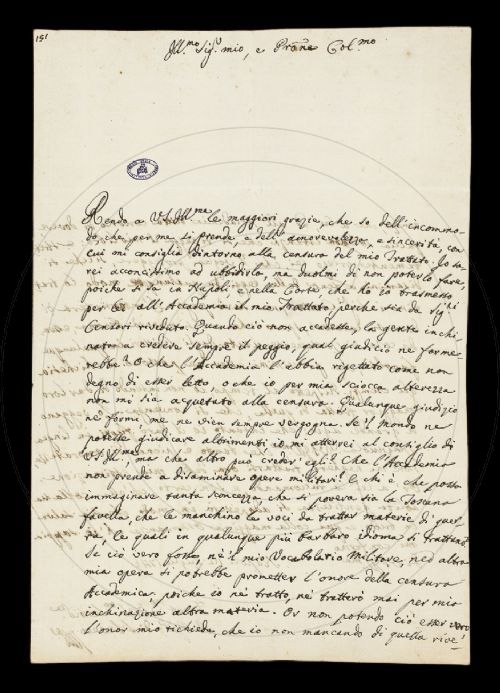 151
Ill.mo Sig.r mio, e Pròne Col.mo
Rendo a VS. Ill.ma le maggiori grazie, che so dell'incommo-
do, che per me si prende, e dell' amorevolezza, e sincerità, con
cui mi consiglia d'intorno alla censura del mio Trattato. Io sa-
rei acconcissimo ad ubbidirla, ma duolmi di non poterlo fare,
poiche si sa in Napoli e nella Corte che ho io trasmesso
per lei all'Accademia il mio Trattato perche sia da Sig.ri
Censori riveduto. Quando ciò non accadesse, la gente inchi-
nata a credere sempre il peggio, qual giudicio ne forme-
rebbe? O che l'Accademia l'abbia rigettato come non
degno di esser letto, o che io per mia sciocca alterezza
non mi sia acquetato alla censura. Qualunque giudizio
ne formi, me ne vien sempre vergogna. Se il mondo ne
potesse giudicare altrimenti io mi atterrei al consiglio di
VS. Ill.ma, ma che altro può creder egli? Che l'Accademia
non prende a disaminare opere militari? E chi è che possa
immaginare tanta sconcezza, che sì povera sia la Toscana
favella, che le manchino le voci da trattar materie di guer-
ra, le quali in qualunque più barbaro idioma si trattano?
Se ciò vero fosse, nè il mio Vocabolario Militare, nè d'altra
mia opera si potrebbe prometter l'onore della censura
Accademica, poiche io nè tratto, nè tratterò mai per mia
inchinazione altra materia. Or non potendo ciò esser vero
l'onor mio richiede, che io non mancando di quella rive-